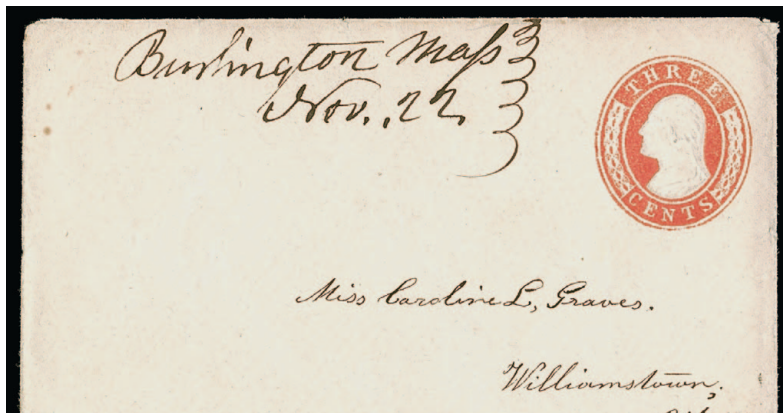 Burlington Mass
Nov. 22
THREE
CENTS
Miss Caroline L, Graves.
Williamstown,